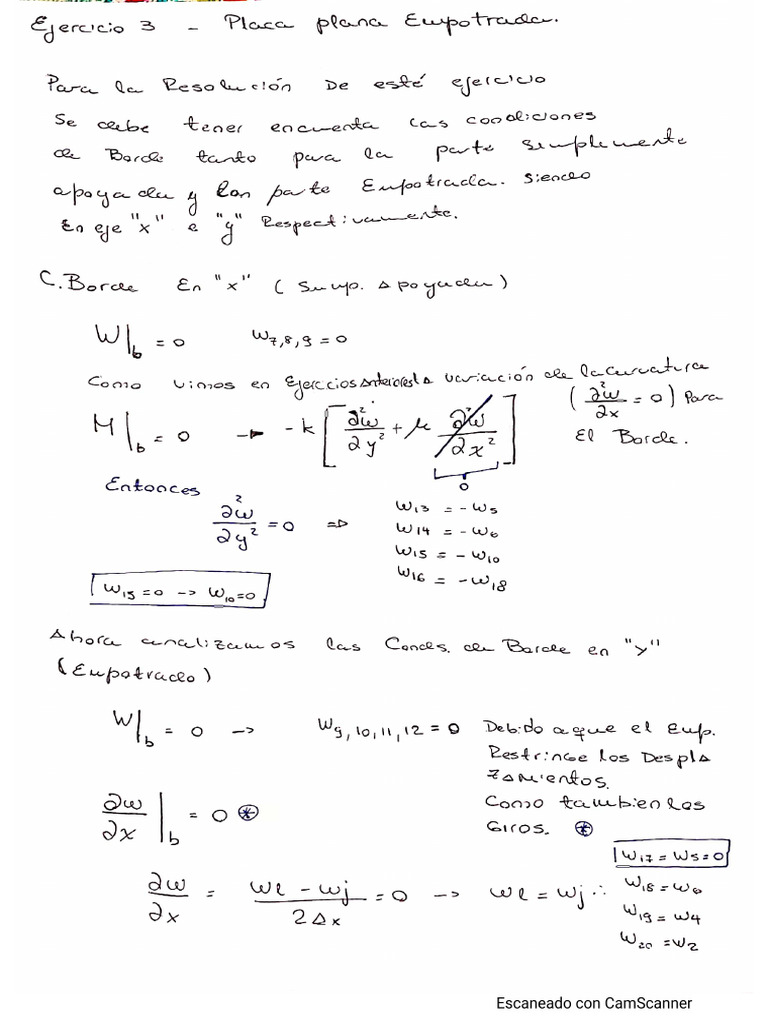 Ejercicio 3 - Placa plana Empotrada.
Para la Resolución De esté ejercicio
Se debe tener encuenta las condiciones
de Borde tanto para la parte simplemente
apoyada y lan parte Empotrada. Siendo
En eje "x" e "y" Respectivamente.
C. Borde En "x" ( Simp. Apoyada )
W|b = 0 W7,8,9 = 0
Como vimos en Ejerccios Anteriores La variación de la curvatura
M|b = 0 -> -k [ ∂²ω/∂y² + μ ∂²ω/∂x² ] ( ∂²ω/∂x = 0 ) Para
El Borde.
0
Entonces
∂²ω/∂y² = 0 =>
W13 = -W5
W14 = -W6
W15 = -W10
W16 = -W18
W15 = 0 -> W10 = 0
Ahora analizamos las Conds. de Borde en "y"
(Empotrado)
W|b = 0 -> W9,10,11,12 = 0 Debido a que el Emp.
Restringe los Despla
zamientos.
Como tambien los
Giros. *
∂ω/∂x |b = 0 *
∂ω/∂x = (Wl - Wj)/(2Δx) = 0 -> Wl = Wj ∴
W17 = W5 = 0
W18 = W6
W19 = W4
W20 = W2
Escaneado con CamScanner